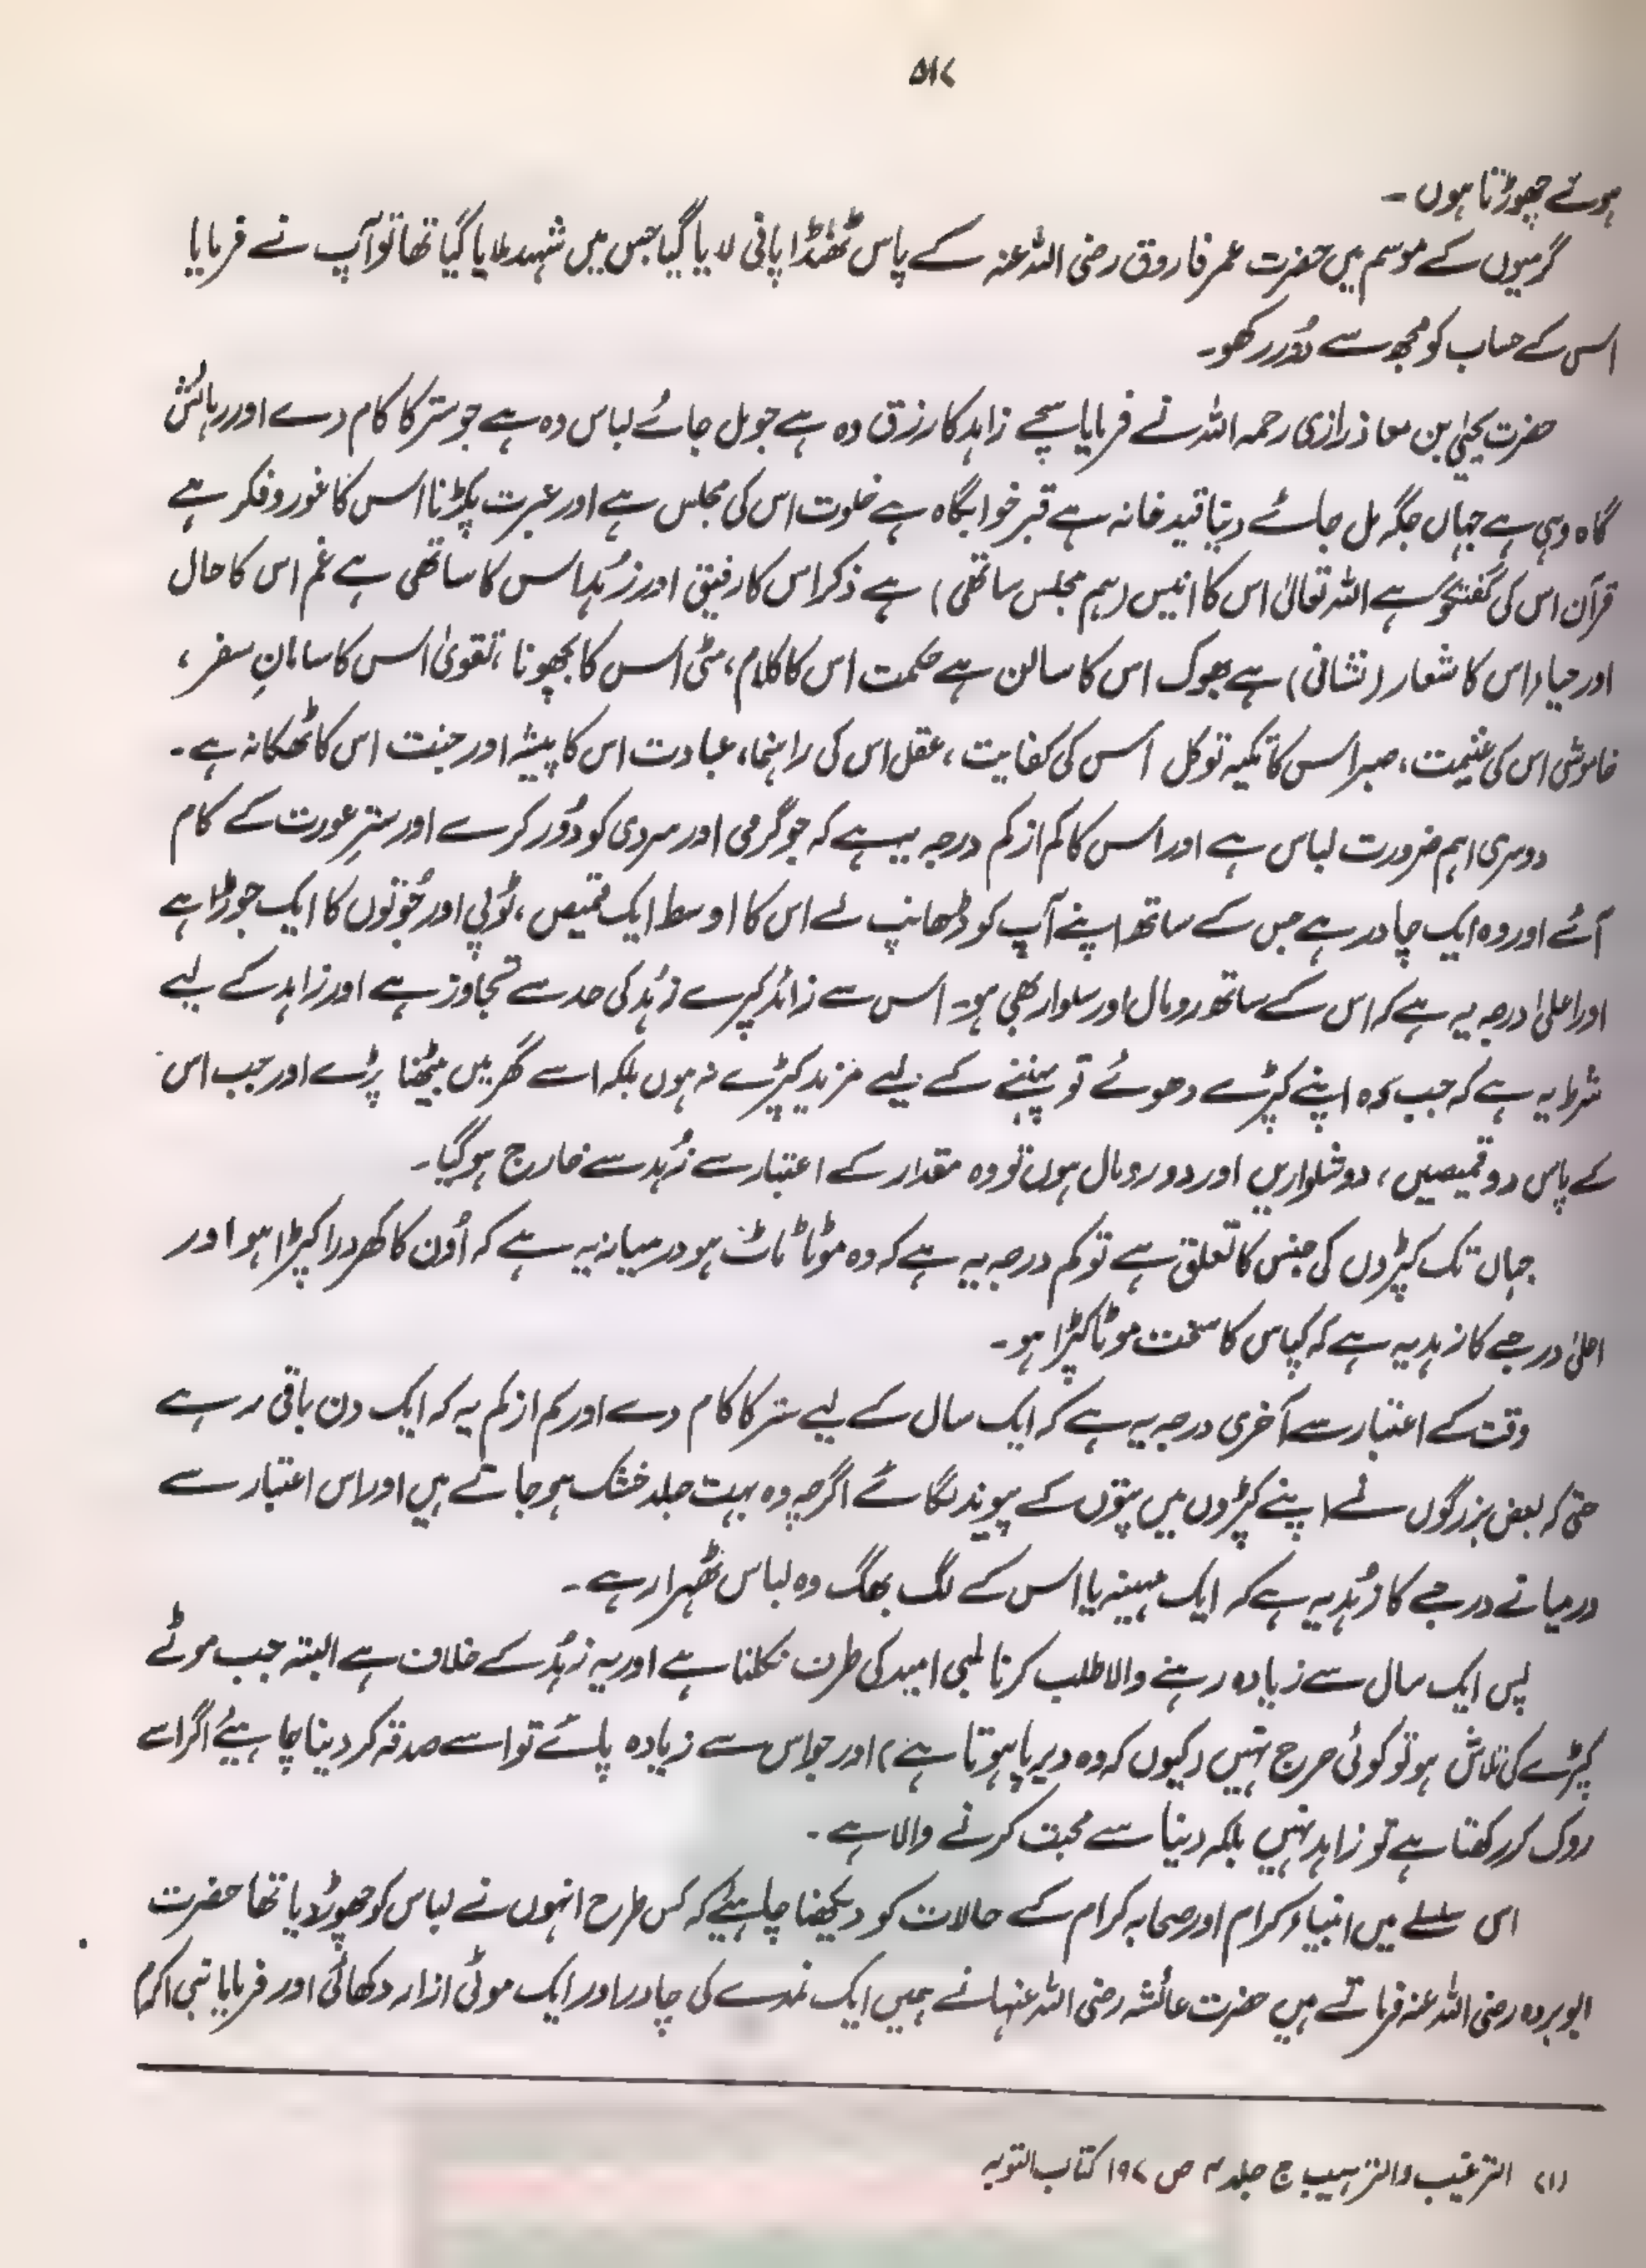 ۵۱۷
ہوئے چھوڑتا ہوں ۔
گرمیوں کے موسم میں حضرت عمر فاروق رضی اللہ عنہ کے پاس ٹھنڈا پانی لایا گیا جس میں شہد ملایا گیا تھا تو آپ نے فرمایا
اس کے حساب کو مجھ سے دُور رکھو۔
حضرت یحییٰ بن معاذ رازی رحمہ اللہ نے فرمایا سچے زاہد کا رزق وہ ہے جو مل جائے لباس وہ ہے جو ستر کا کام دے اور رہائش
گاہ وہی ہے جہاں جگہ مل جائے دنیا قید خانہ ہے قبر خوابگاہ ہے خلوت اس کی مجلس ہے اور عبرت پکڑنا اس کا غور و فکر ہے
قرآن اس کی گفتگو ہے اللہ تعالیٰ اس کا انیس (ہم مجلس ساتھی) ہے ذکر اس کا رفیق اور زُہد اس کا ساتھی ہے غم اس کا حال
اور حیاء اس کا شعار (نشانی) ہے بھوک اس کا سالن ہے حکمت اس کا کلام، مٹی اس کا بچھونا ، تقویٰ اس کا سامانِ سفر ،
خاموشی اس کی غنیمت ، صبر اس کا تکیہ توکل اس کی کفایت ، عقل اس کی راہنما، عبادت اس کا پیشہ اور جنت اس کا ٹھکانہ ہے ۔
دوسری اہم ضرورت لباس ہے اور اس کا کم از کم درجہ یہ ہے کہ جو گرمی اور سردی کو دُور کرے اور سترِ عورت کے کام
آئے اور وہ ایک چادر ہے جس کے ساتھ اپنے آپ کو ڈھانپ لے اس کا اوسط ایک قمیص ، ٹوپی اور جُوتوں کا ایک جوڑا ہے
اور اعلیٰ درجہ یہ ہے کہ اس کے ساتھ رومال اور سلوار بھی ہو۔ اس سے زائد کپڑے زُہد کی حد سے تجاوز ہے اور زاہد کے لیے
شرط یہ ہے کہ جب وہ اپنے کپڑے دھوئے تو پہننے کے لیے مزید کپڑے نہ ہوں بلکہ اسے گھر میں بیٹھنا پڑے اور جب اس
کے پاس دو قمیصیں ، دو شلواریں اور دو رومال ہوں تو وہ مقدار کے اعتبار سے زُہد سے خارج ہوگیا ۔
جہاں تک کپڑوں کی جنس کا تعلق ہے تو کم درجہ یہ ہے کہ وہ موٹا ٹاٹ ہو درمیانہ یہ ہے کہ اُون کا کھردرا کپڑا ہو اور
اعلیٰ درجے کا زہد یہ ہے کہ کپاس کا سخت موٹا کپڑا ہو ۔
وقت کے اعتبار سے آخری درجہ یہ ہے کہ ایک سال کے لیے ستر کا کام دے اور کم از کم یہ کہ ایک دن باقی رہے
حتی کہ بعض بزرگوں نے اپنے کپڑوں میں پتوں کے پیوند لگائے اگرچہ وہ بہت جلد خشک ہو جاتے ہیں اور اس اعتبار سے
درمیانے درجے کا زُہد یہ ہے کہ ایک مہینہ یا اس کے لگ بھگ وہ لباس ٹھہرا رہے ۔
پس ایک سال سے زیادہ رہنے والا طلب کرنا لمبی امید کی طرف نکلنا ہے اور یہ زُہد کے خلاف ہے البتہ جب موٹے
کپڑے کی تلاش ہو تو کوئی حرج نہیں (کیوں کہ وہ دیرپا ہوتا ہے) اور جو اس سے زیادہ پائے تو اسے صدقہ کر دینا چاہیئے اگر اسے
روک کر رکھتا ہے تو زاہد نہیں بلکہ دینا سے محبت کرنے والا ہے ۔
اس سلسلے میں انبیاء کرام اور صحابہ کرام کے حالات کو دیکھنا چاہیئے کہ کس طرح انہوں نے لباس کو چھوڑ دیا تھا حضرت
ابوبردہ رضی اللہ عنہ فرماتے ہیں حضرت عائشہ رضی اللہ عنہا نے ہمیں ایک نمدے کی چادر اور ایک موٹی ازار دکھائی اور فرمایا نبی اکرم
(۱) الترغیب والترہیب ج جلد ۴ ص ۱۹۷ کتاب التوبہ